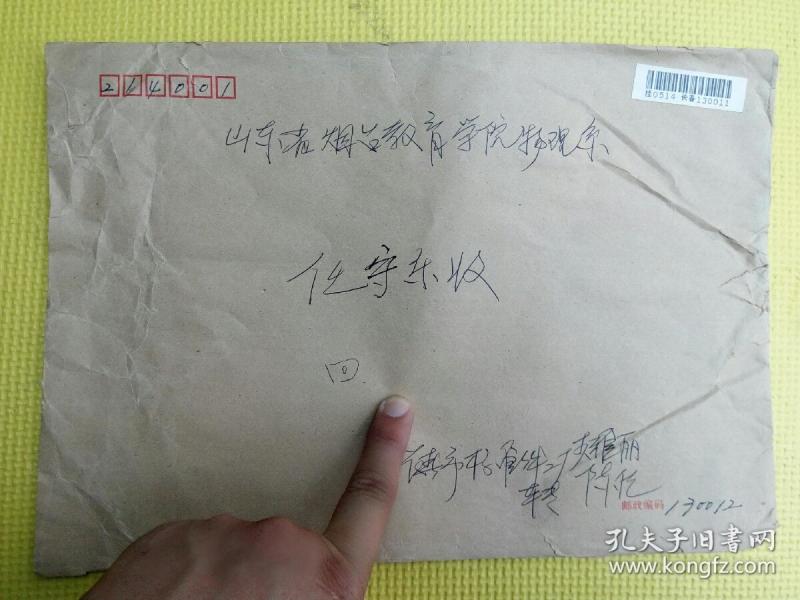 214001
挂0514 长春130011
山东省烟台教育学院物理系
任守东收
回
陈忆
邮政编码 130012
孔夫子旧书网
www.kongfz.com